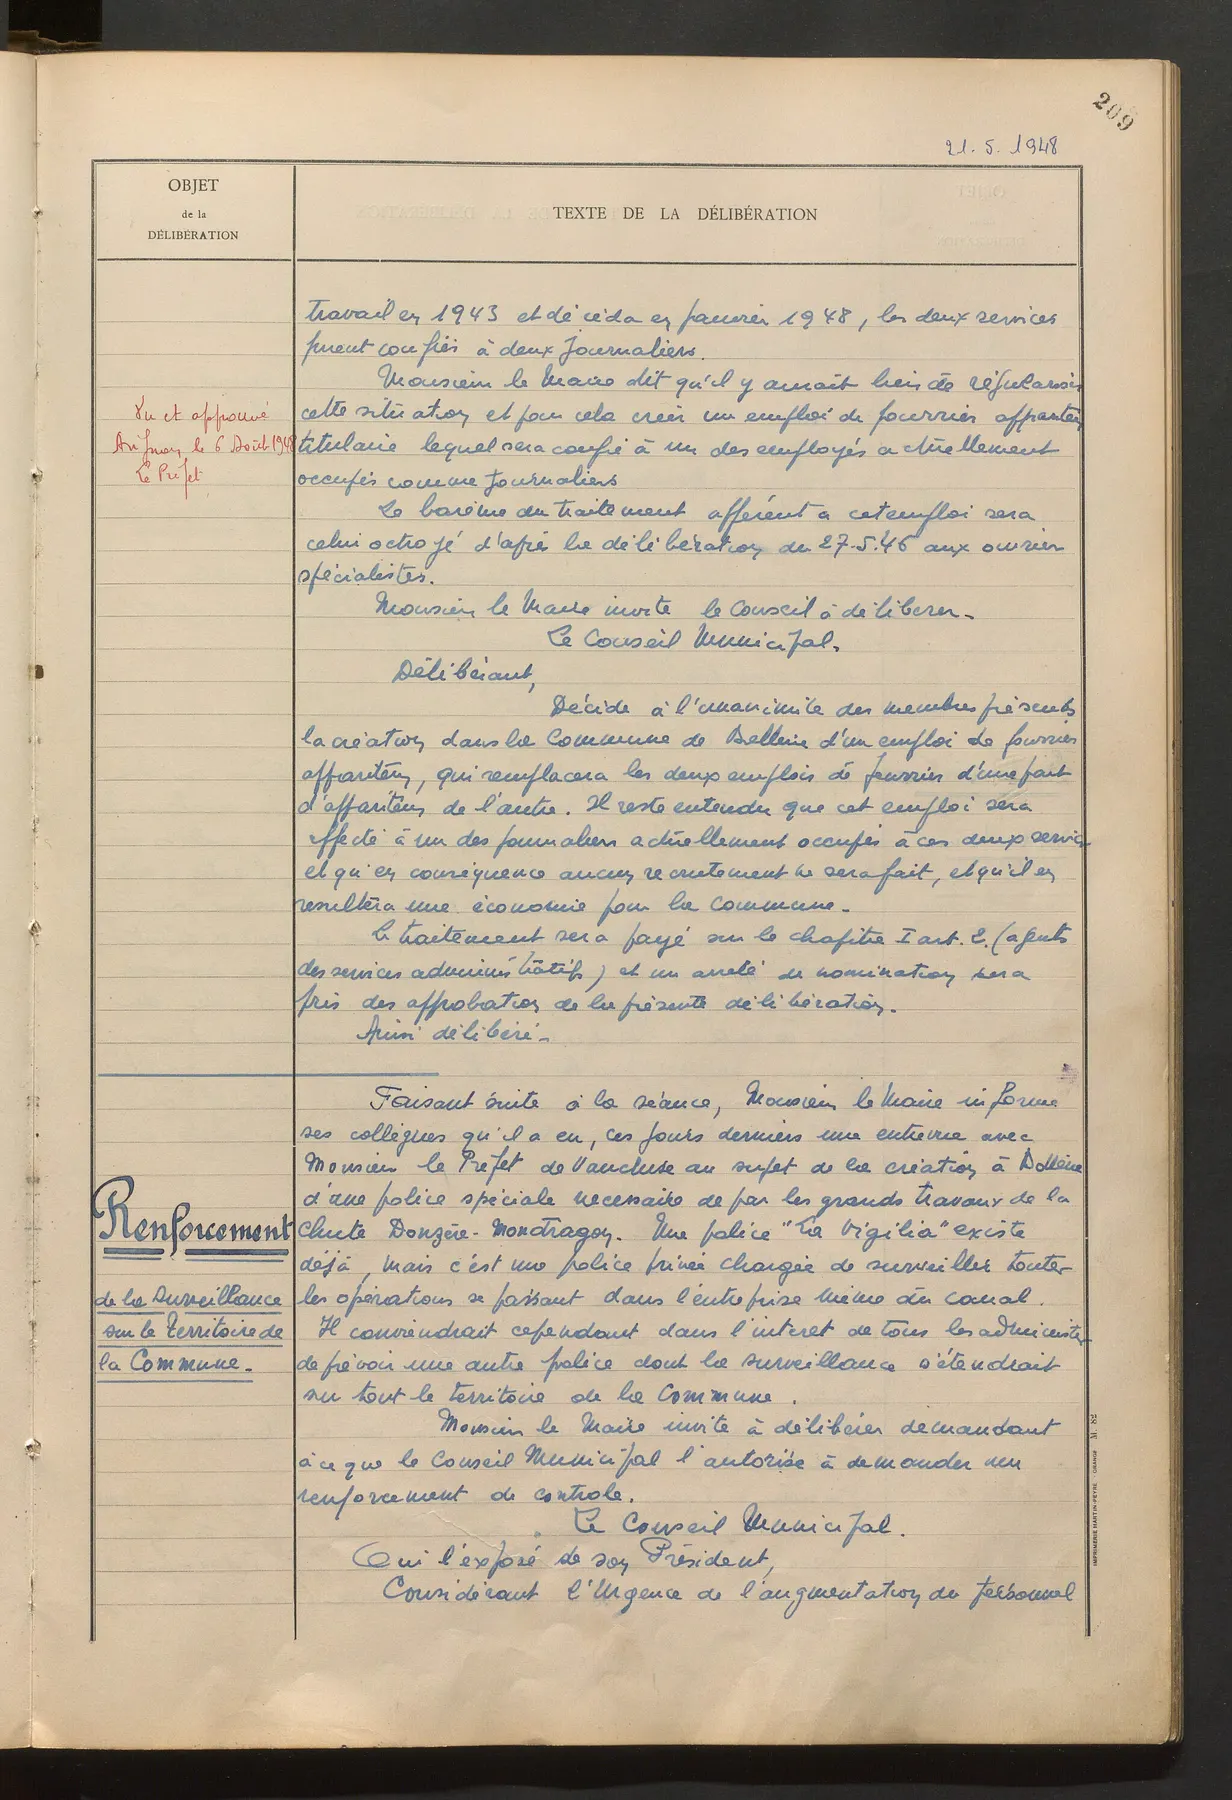 209
21. 5. 1948
OBJET
de la
DÉLIBÉRATION
TEXTE DE LA DÉLIBÉRATION
travail en 1943 et décéda en janvier 1948, les deux services
furent confiés à deux journaliers.
Monsieur le Maire dit qu'il y aurait lieu de régulariser
cette situation et pour cela créer un emploi de fourrier appariteur
titulaire lequel sera confié à un des employés actuellement
occupés comme journaliers
Vu et approuvé
Avignon le 6 Août 1948
Le Préfet
Le barème du traitement afférent à cet emploi sera
celui octroyé d'après la délibération du 27.5.46 aux ouvriers
spécialistes.
Monsieur le Maire invite le Conseil à délibérer.
Le Conseil Municipal.
Délibérant,
Décide à l'unanimité des membres présents
la création dans la Commune de Bollène d'un emploi de fourrier
appariteur, qui remplacera les deux emplois de fourrier d'une part
d'appariteur de l'autre. Il reste entendu que cet emploi sera
affecté à un des journaliers actuellement occupés à ces deux services
et qu'en conséquence aucun recrutement ne sera fait, et qu'il en
resultera une économie pour la commune.
Le traitement sera payé sur le chapitre I art. 2. (agents
des services administratifs) et un arrêté de nomination sera
pris dès approbation de la présente délibération.
Ainsi délibéré.
Faisant suite à la séance, Monsieur le Maire informe
ses collègues qu'il a eu, ces jours derniers une entrevue avec
Monsieur le Préfet de Vaucluse au sujet de la création à Bollène
d'une police spéciale nécessaire de par les grands travaux de la
Chute Donzère-Mondragon. Une police "La Vigilia" existe
déjà, mais c'est une police privée chargée de surveiller toutes
les opérations se passant dans l'entreprise même du canal.
Il conviendrait cependant dans l'interet de tous les administrés
de prévoir une autre police dont la surveillance s'étendrait
sur tout le territoire de la Commune.
Renforcement
de la Surveillance
sur le Territoire de
la Commune.
Monsieur le Maire invite à délibérer demandant
à ce que le Conseil Municipal l'autorise à demander un
renforcement de controle.
Le Conseil Municipal.
Oui l'exposé de son Président,
Considérant l'Urgence de l'augmentation du personnel
IMPRIMERIE MARTIN-PEYRE - ORANGE M. 82